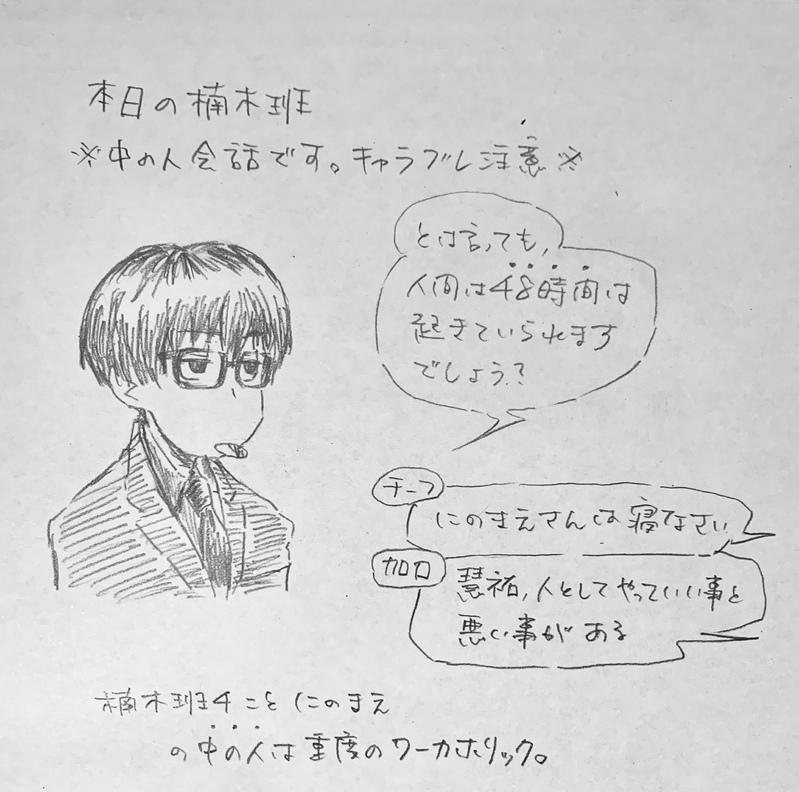 本日の楠木班
※中の人会話です。キャラブレ注意※
とは言っても、
人間は48時間は
起きていられます
でしょう?
チーフ
にのまえさんは寝なさい
加口
慧祐,人としてやっていい事と
悪い事がある
楠木班4ことにのまえ
の中の人は重度のワーカホリック。